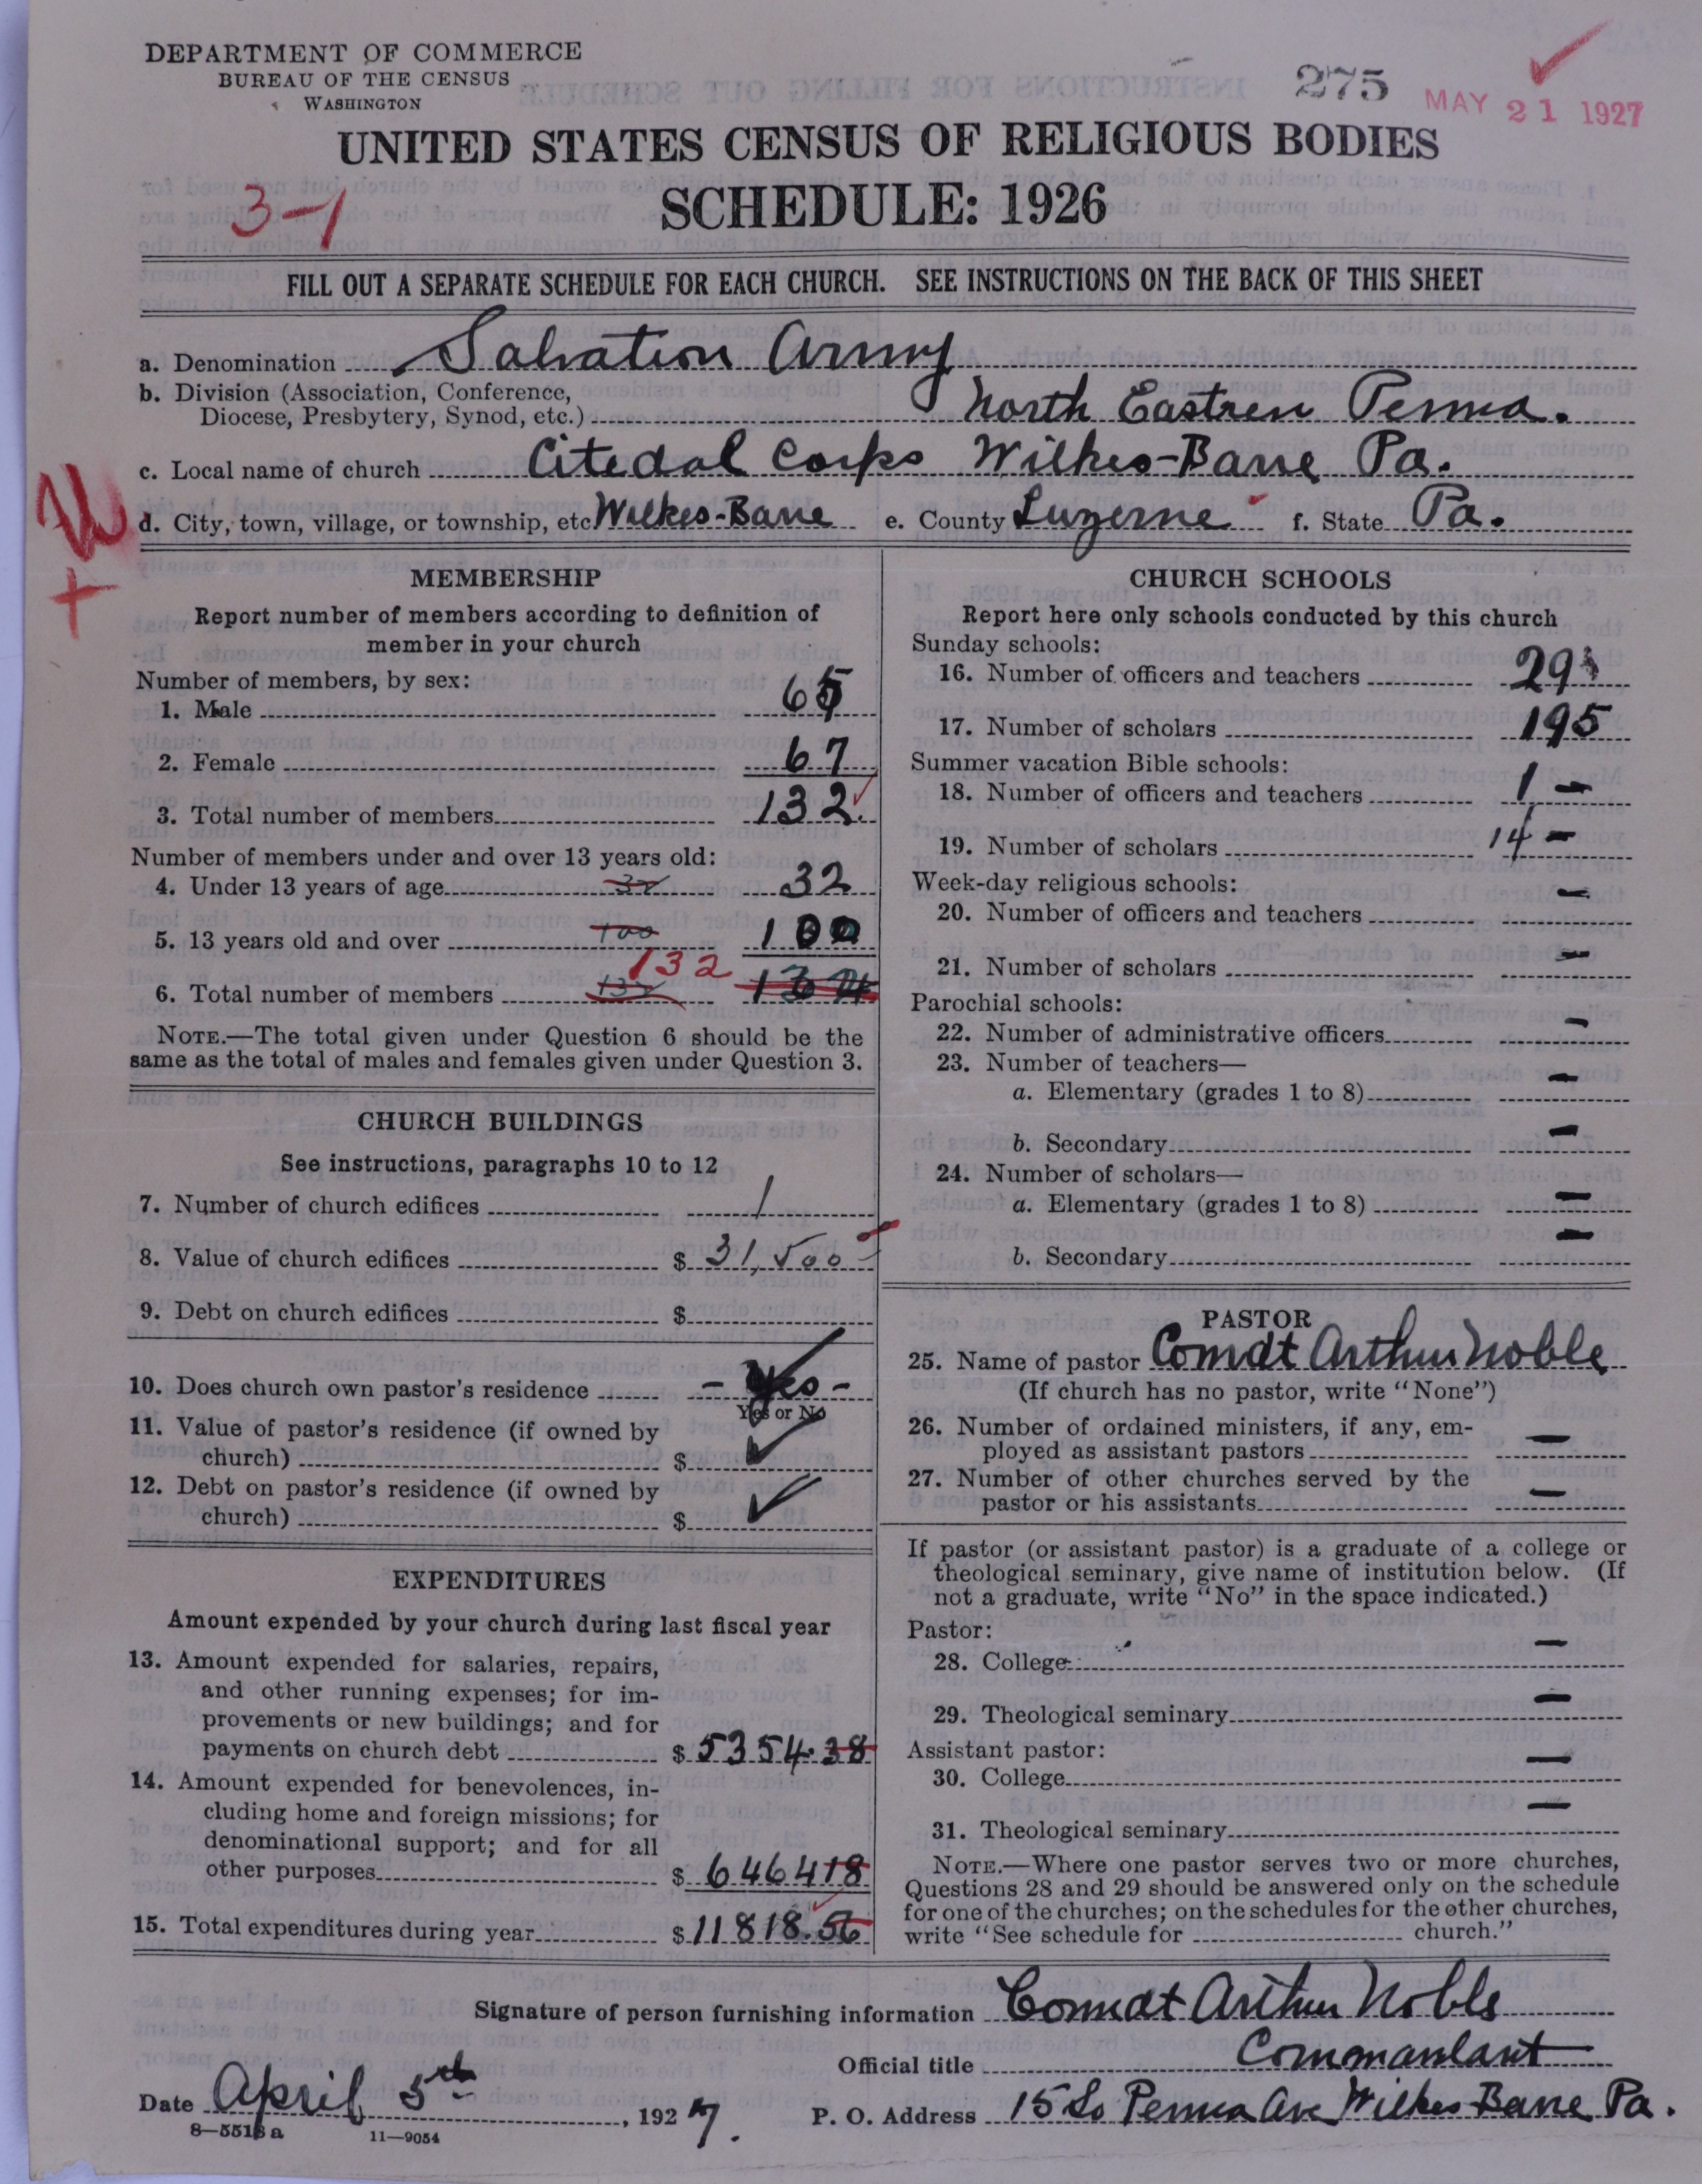 DEPARTMENT OF COMMERCE
BUREAU OF THE CENSUS
WASHINGTON
275
MAY 21 1927
UNITED STATES CENSUS OF RELIGIOUS BODIES
3-1
SCHEDULE: 1926
FILL OUT A SEPARATE SCHEDULE FOR EACH CHURCH. SEE INSTRUCTIONS ON THE BACK OF THIS SHEET
a. Denomination Salvation Army
b. Division (Association, Conference,
Diocese, Presbytery, Synod, etc.) North Eastren Penna.
c. Local name of church Citedal Corps Wilkes-Barre Pa.
d. City, town, village, or township, etc Wilkes-Barre e. County Luzerne f. State Pa.
MEMBERSHIP
Report number of members according to definition of
member in your church
Number of members, by sex:
1. Male 65
2. Female 67
3. Total number of members 132
Number of members under and over 13 years old:
4. Under 13 years of age 32 32
5. 13 years old and over 100 100
132
6. Total number of members 132
NOTE.—The total given under Question 6 should be the
same as the total of males and females given under Question 3.
CHURCH BUILDINGS
See instructions, paragraphs 10 to 12
7. Number of church edifices 1
8. Value of church edifices $ 31,500
9. Debt on church edifices $
10. Does church own pastor's residence - Yes -
Yes or No
11. Value of pastor's residence (if owned by
church) $
12. Debt on pastor's residence (if owned by
church) $
EXPENDITURES
Amount expended by your church during last fiscal year
13. Amount expended for salaries, repairs,
and other running expenses; for im-
provements or new buildings; and for
payments on church debt $ 5354.38
14. Amount expended for benevolences, in-
cluding home and foreign missions; for
denominational support; and for all
other purposes $ 646418
15. Total expenditures during year $ 11818.56
CHURCH SCHOOLS
Report here only schools conducted by this church
Sunday schools:
16. Number of officers and teachers 29
17. Number of scholars 195
Summer vacation Bible schools:
18. Number of officers and teachers 1 -
19. Number of scholars 14 -
Week-day religious schools:
20. Number of officers and teachers -
21. Number of scholars -
Parochial schools:
22. Number of administrative officers -
23. Number of teachers—
a. Elementary (grades 1 to 8) -
b. Secondary -
24. Number of scholars—
a. Elementary (grades 1 to 8) -
b. Secondary -
PASTOR
25. Name of pastor Comdt Arthur Noble
(If church has no pastor, write "None")
26. Number of ordained ministers, if any, em-
ployed as assistant pastors -
27. Number of other churches served by the
pastor or his assistants -
If pastor (or assistant pastor) is a graduate of a college or
theological seminary, give name of institution below. (If
not a graduate, write "No" in the space indicated.)
Pastor:
28. College -
29. Theological seminary -
Assistant pastor:
30. College -
31. Theological seminary -
NOTE.—Where one pastor serves two or more churches,
Questions 28 and 29 should be answered only on the schedule
for one of the churches; on the schedules for the other churches,
write "See schedule for church."
Signature of person furnishing information Commdt Arthur Noble
Official title Commandant
Date April 5th, 1927. P. O. Address 15 So Penna Ave Wilkes-Barre Pa.
8—5518a 11—9054